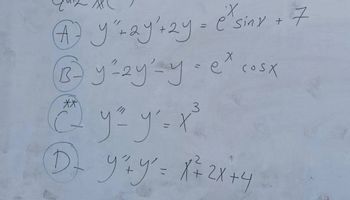 A- y"+2y'+2y = e^x sinx + 7
B- y"-2y'-y = e^x cosx
**
C- y'''- y' = x^3
D- y"+y' = x^2+2x+4